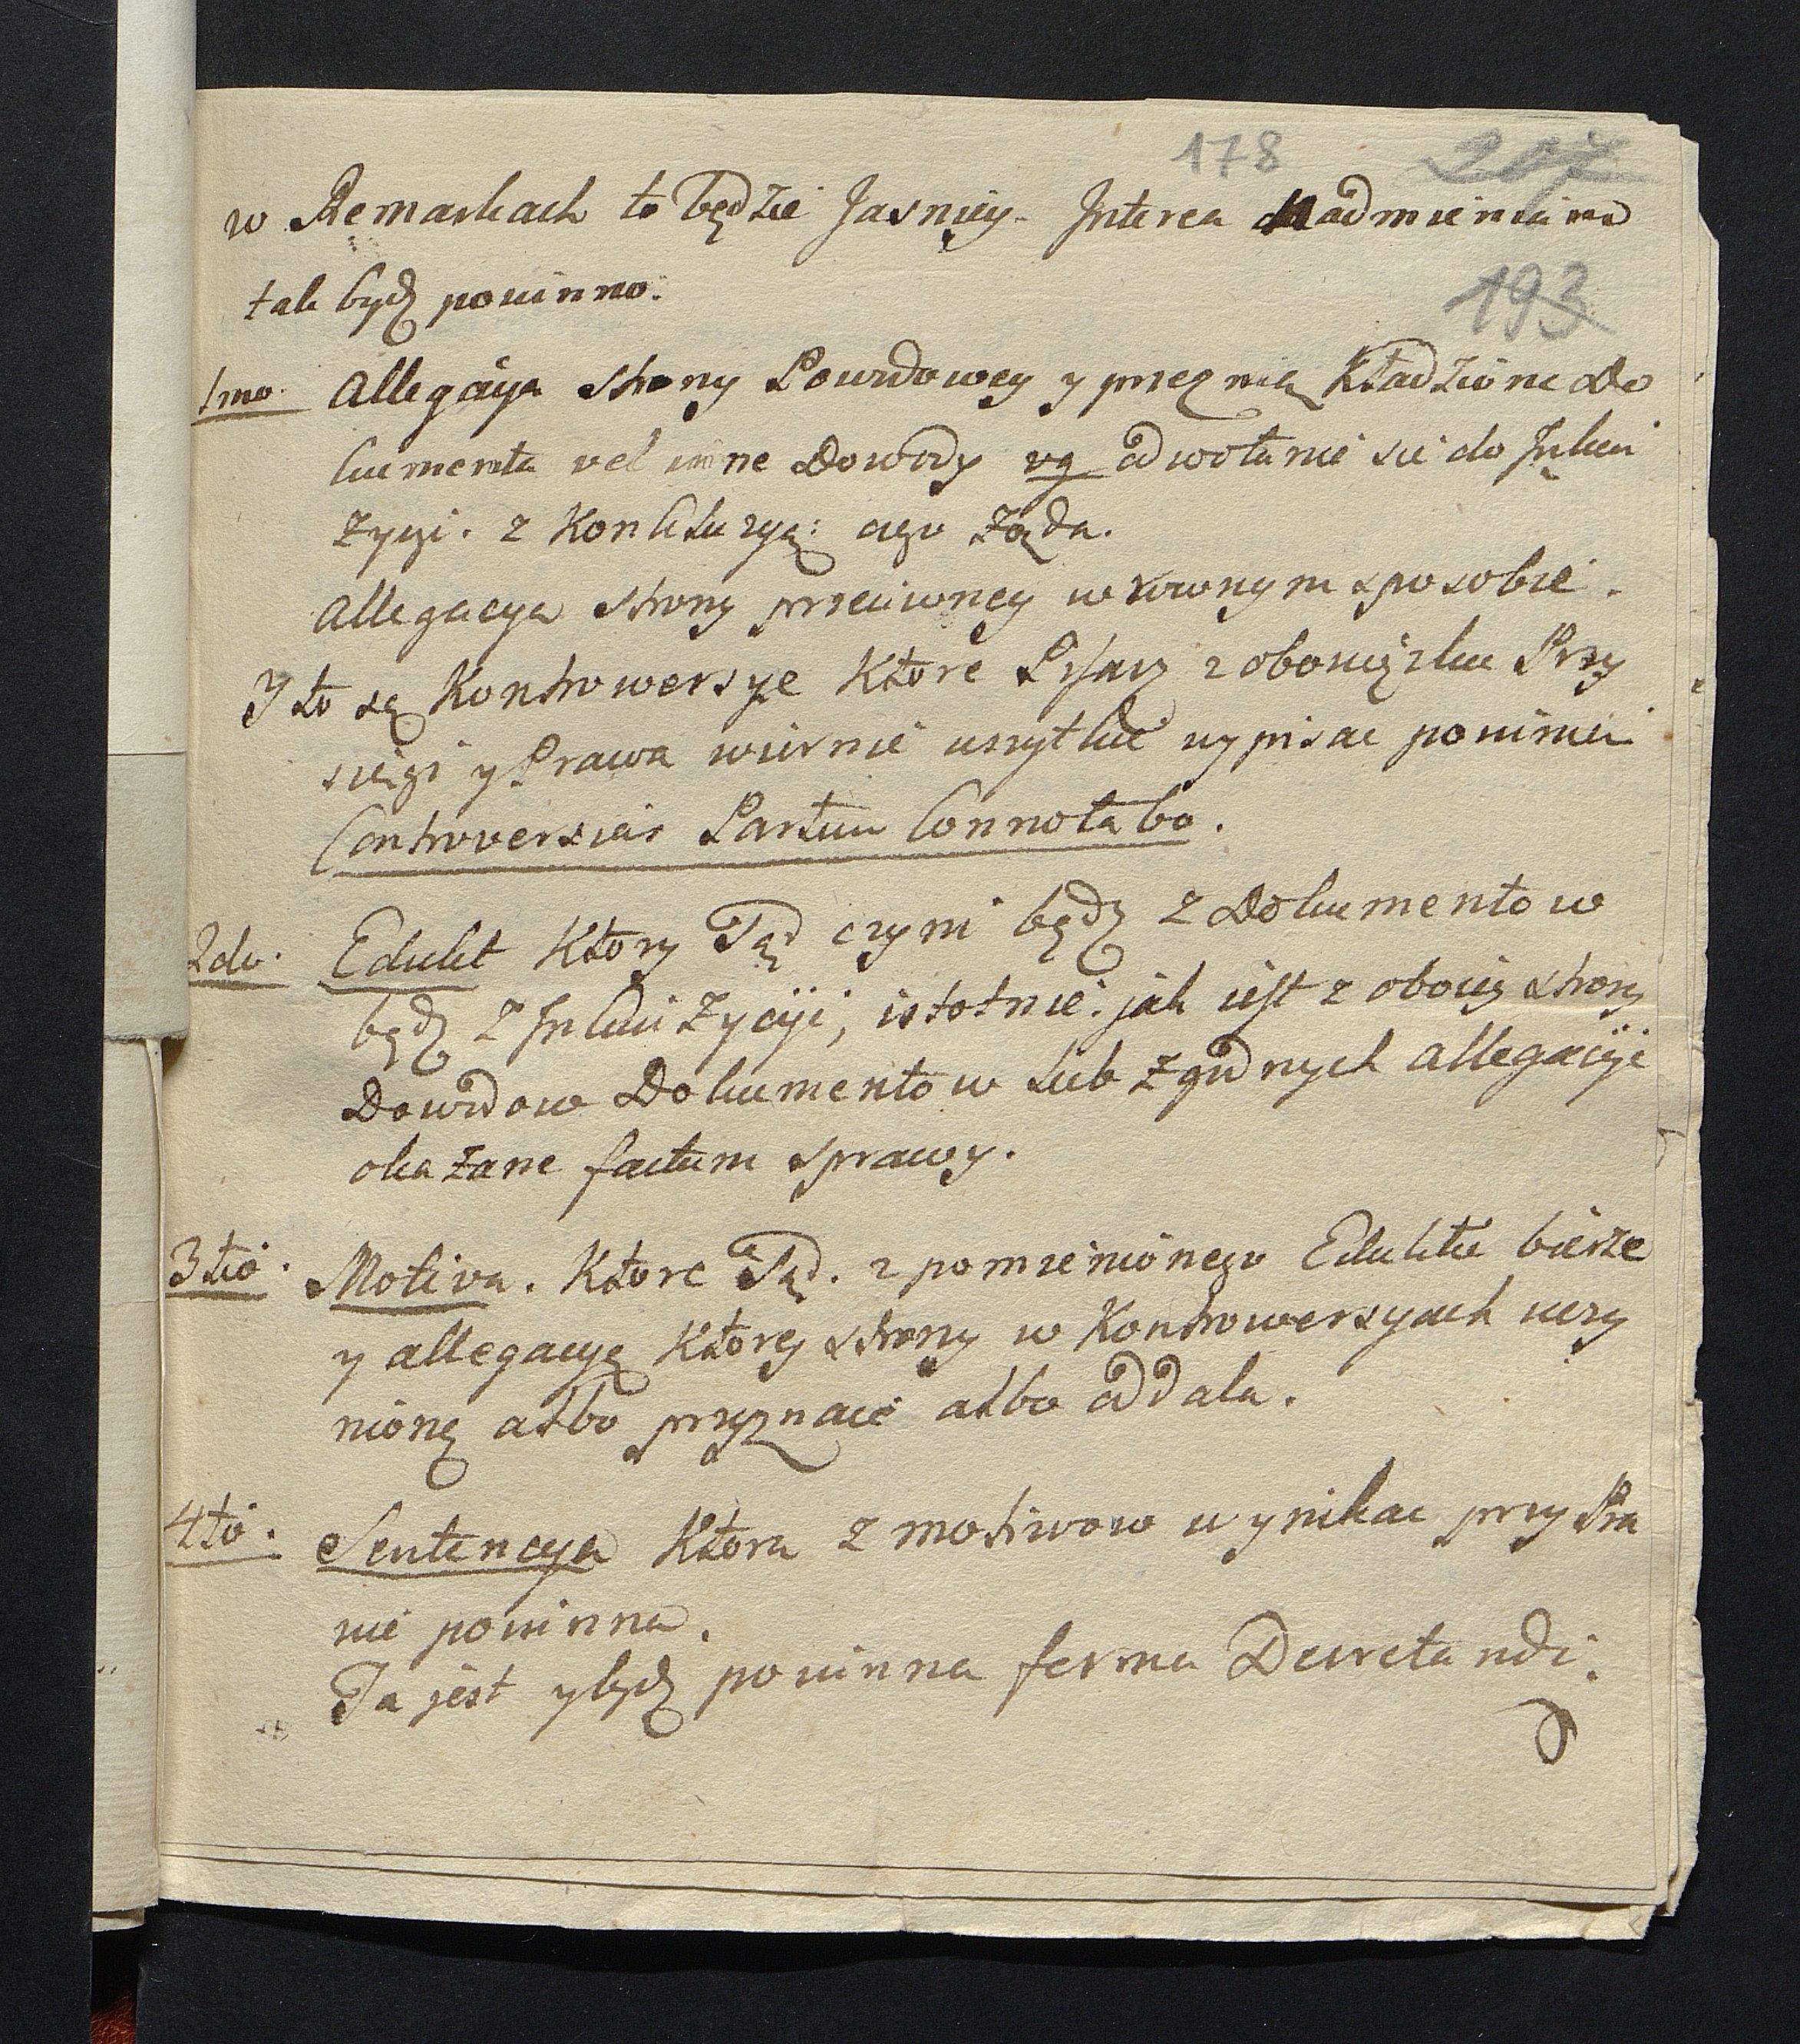 178 207
w Remarkach to będzie Jasniey. Interea nadmieniano
193
tak bydz powinno.
1mo. Allegacya strony Powodowey y przez nię kładzione Do
kumenta vel inne Dowody vg odwołanie sie do Inkwi
zycyi. z Konkluzyą: czego żąda.
Allegacya strony przeciwney w rownym sposobie.
Y to są Kontrowersye Ktore Pisarz z obowiązku Przy
sięgi y Prawa wiernie wszytkie wypisac powinien
Controversias Partium Connotabo.
2do. Edukt Ktory Sąd czyni bądz z Dokumentow
bądz z Inkwizycyi, istotnie jak iest z oboiey strony
Dowodow Dokumentow lub zgodnych allegacyi
okazane factum sprawy.
3tio. Motiva. Ktore Sąd. z pomienionego Eduktu bierze
y allegacyę Ktorey strony w Kontrowersyach uczy
nioną albo przyznaie albo oddala.
4to. Sentencya Ktora z motiwow wynikac przy Pra
wie powinna.
Ta jest y bydz powinna forma Decretandi.